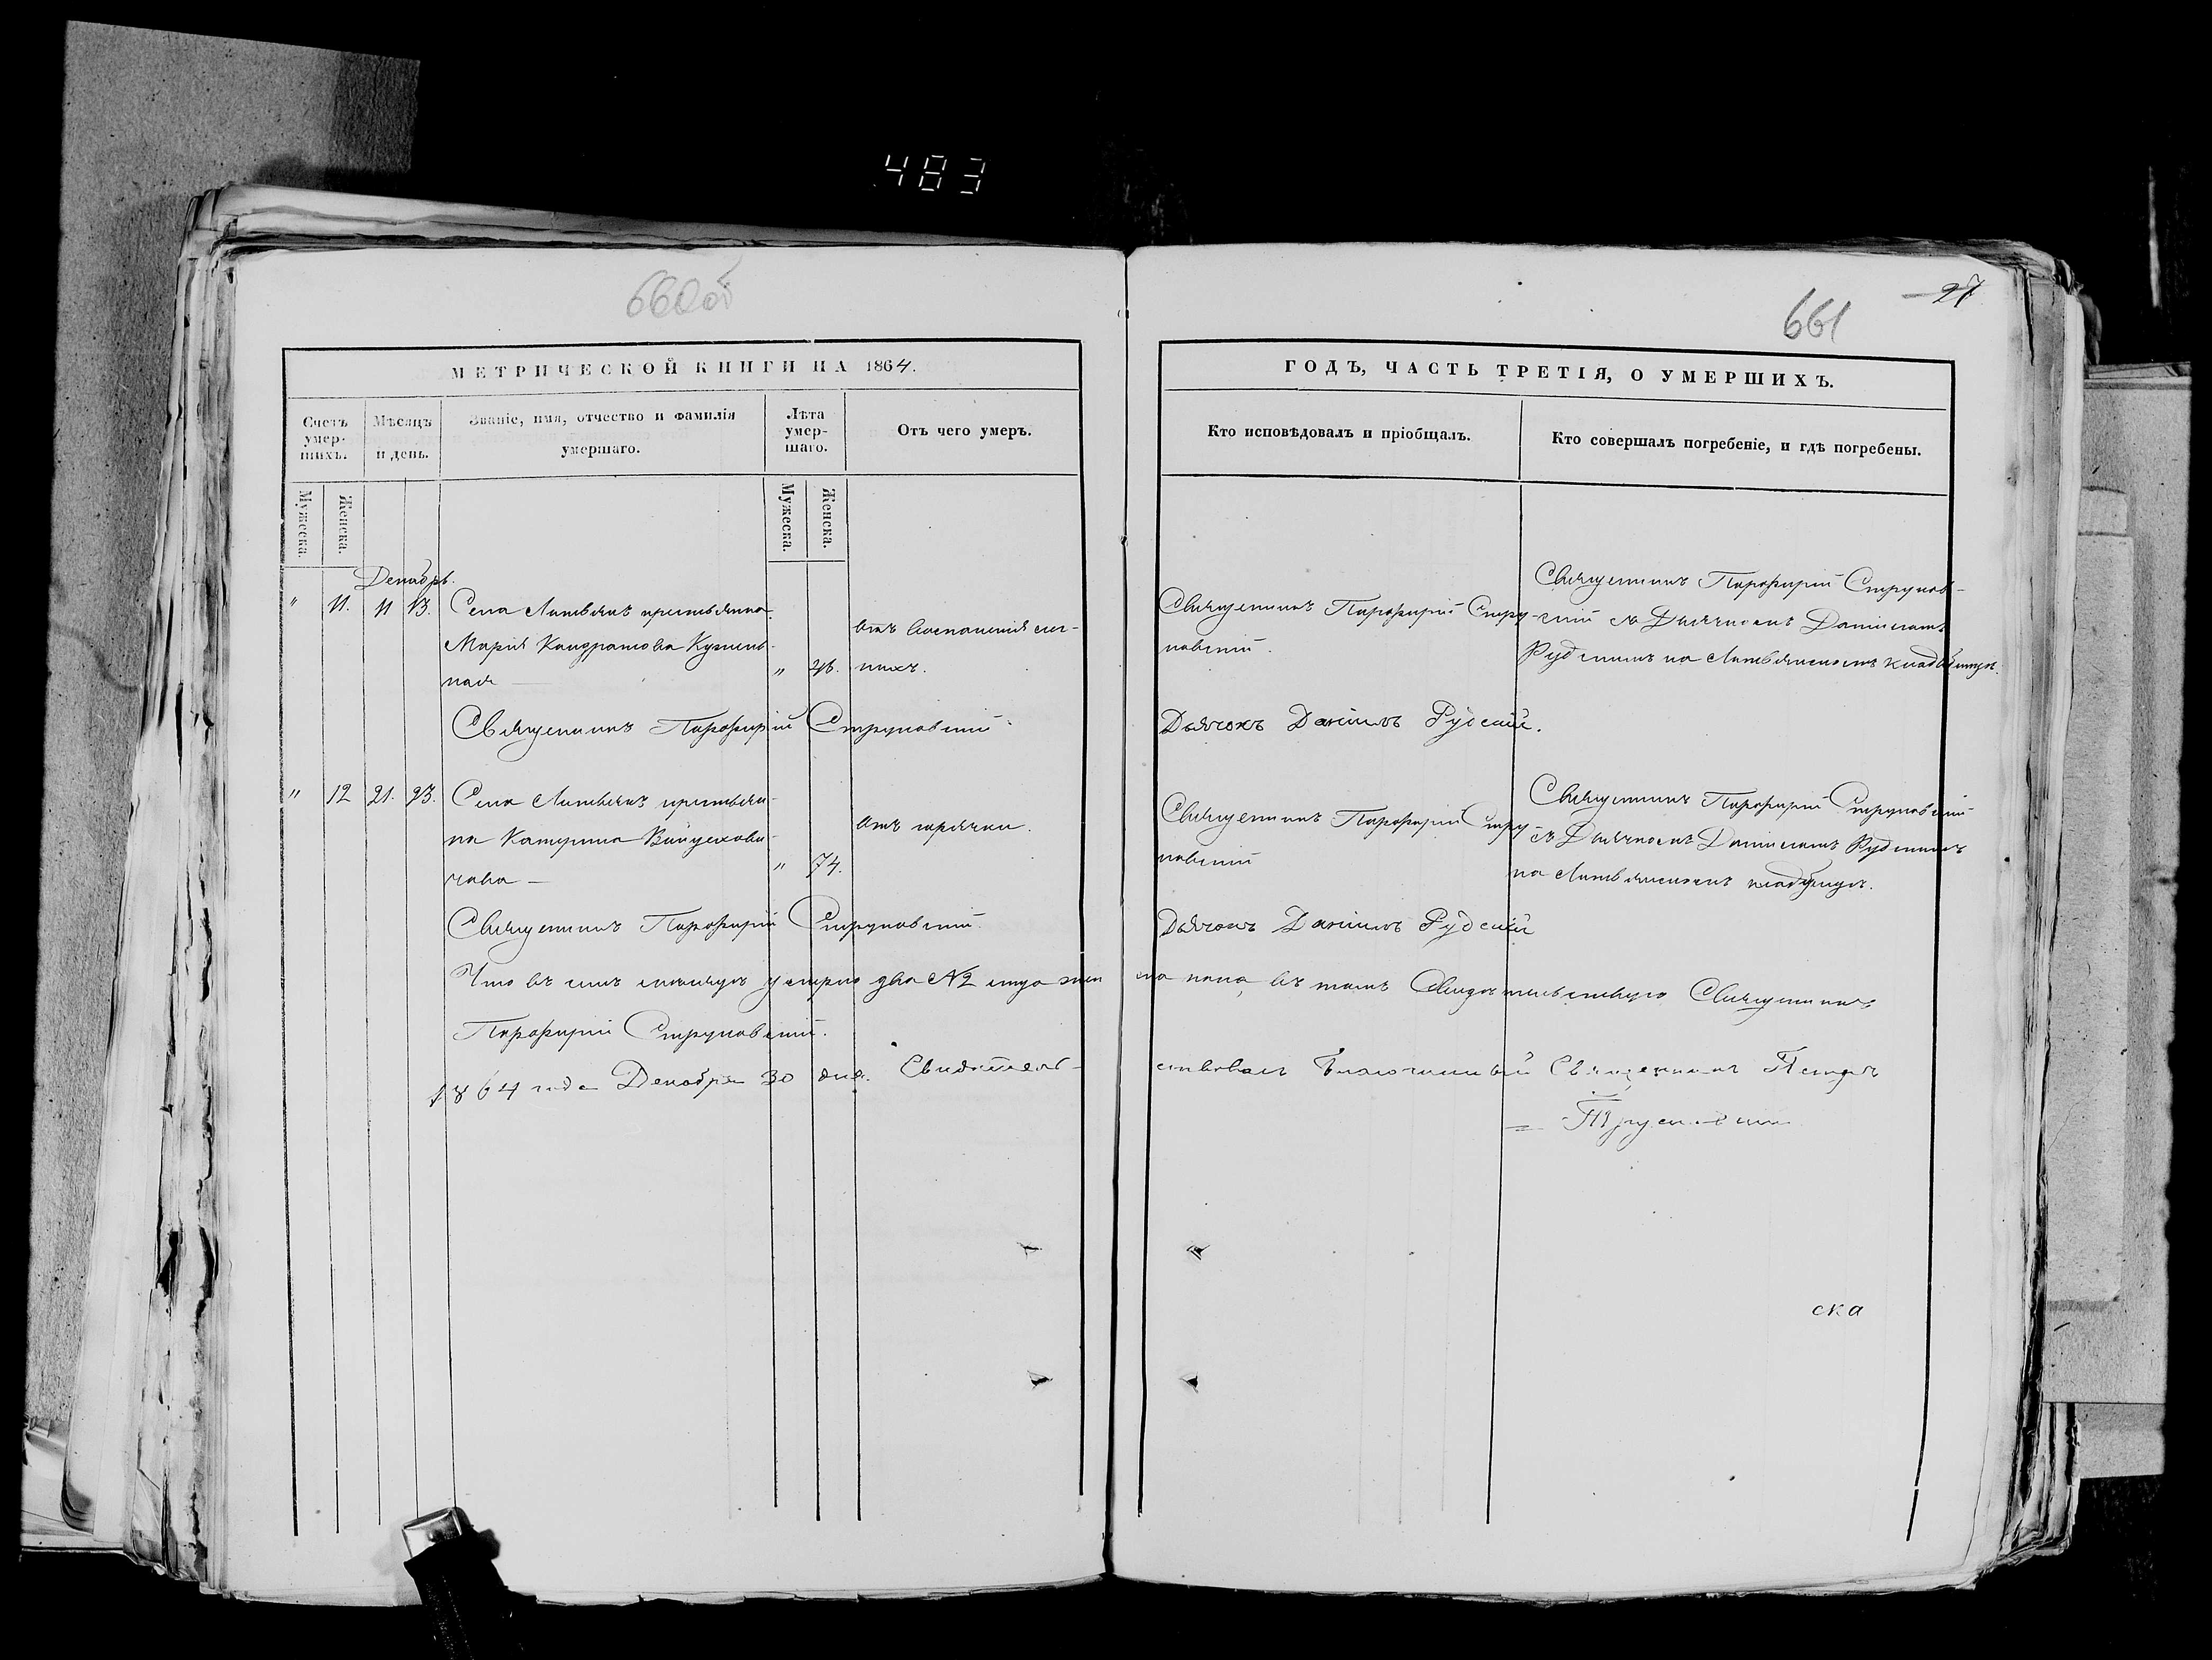 483
660об
661
27
МЕТРИЧЕСКОЙ КНИГИ НА 1864.
ГОДЪ, ЧАСТЬ ТРЕТІЯ, О УМЕРШИХЪ.
Счетъ умер-шихъ.
Мѣсяцъ и день.
Званіе, имя, отчество и фамилія умершаго.
Лѣта умер-шаго.
Отъ чего умеръ.
Кто исповѣдовалъ и пріобщалъ.
Кто совершалъ погребеніе, и гдѣ погребены.
Мужеска.
Женска.
Мужеска.
Женска.
Декабрь.
" 11. 11 13. Села крестьянка
Марія Кондратова
"
отъ
Священникъ Порфирій Стру-
новскій.
Священникъ Порфирій Струнов-
скій съ Дьячкомъ Даніиломъ
Рудскимъ на кладбищѣ.
Священникъ Порфирій Струновскій.
Дьячокъ Даніилъ Рудскій.
" 12 21. 23. Села крестьян-
ка Катерина
" 74.
отъ горячки.
Священникъ Порфирій Стру
новскій
Священникъ Порфирій Струновскій
съ Дьячкомъ Даніиломъ Рудскимъ
на кладбищѣ.
Священникъ Порфирій Струновскій.
Дьячокъ Даніилъ Рудскій
Что въ семъ мѣсяцѣ умерло два №2 пола въ томъ Свидѣтельствую Священникъ
Порфирій Струновскій.
1864 года Декабря 30 дня. Свидѣтель-
ствовалъ Благочинный Священникъ Петръ
ска